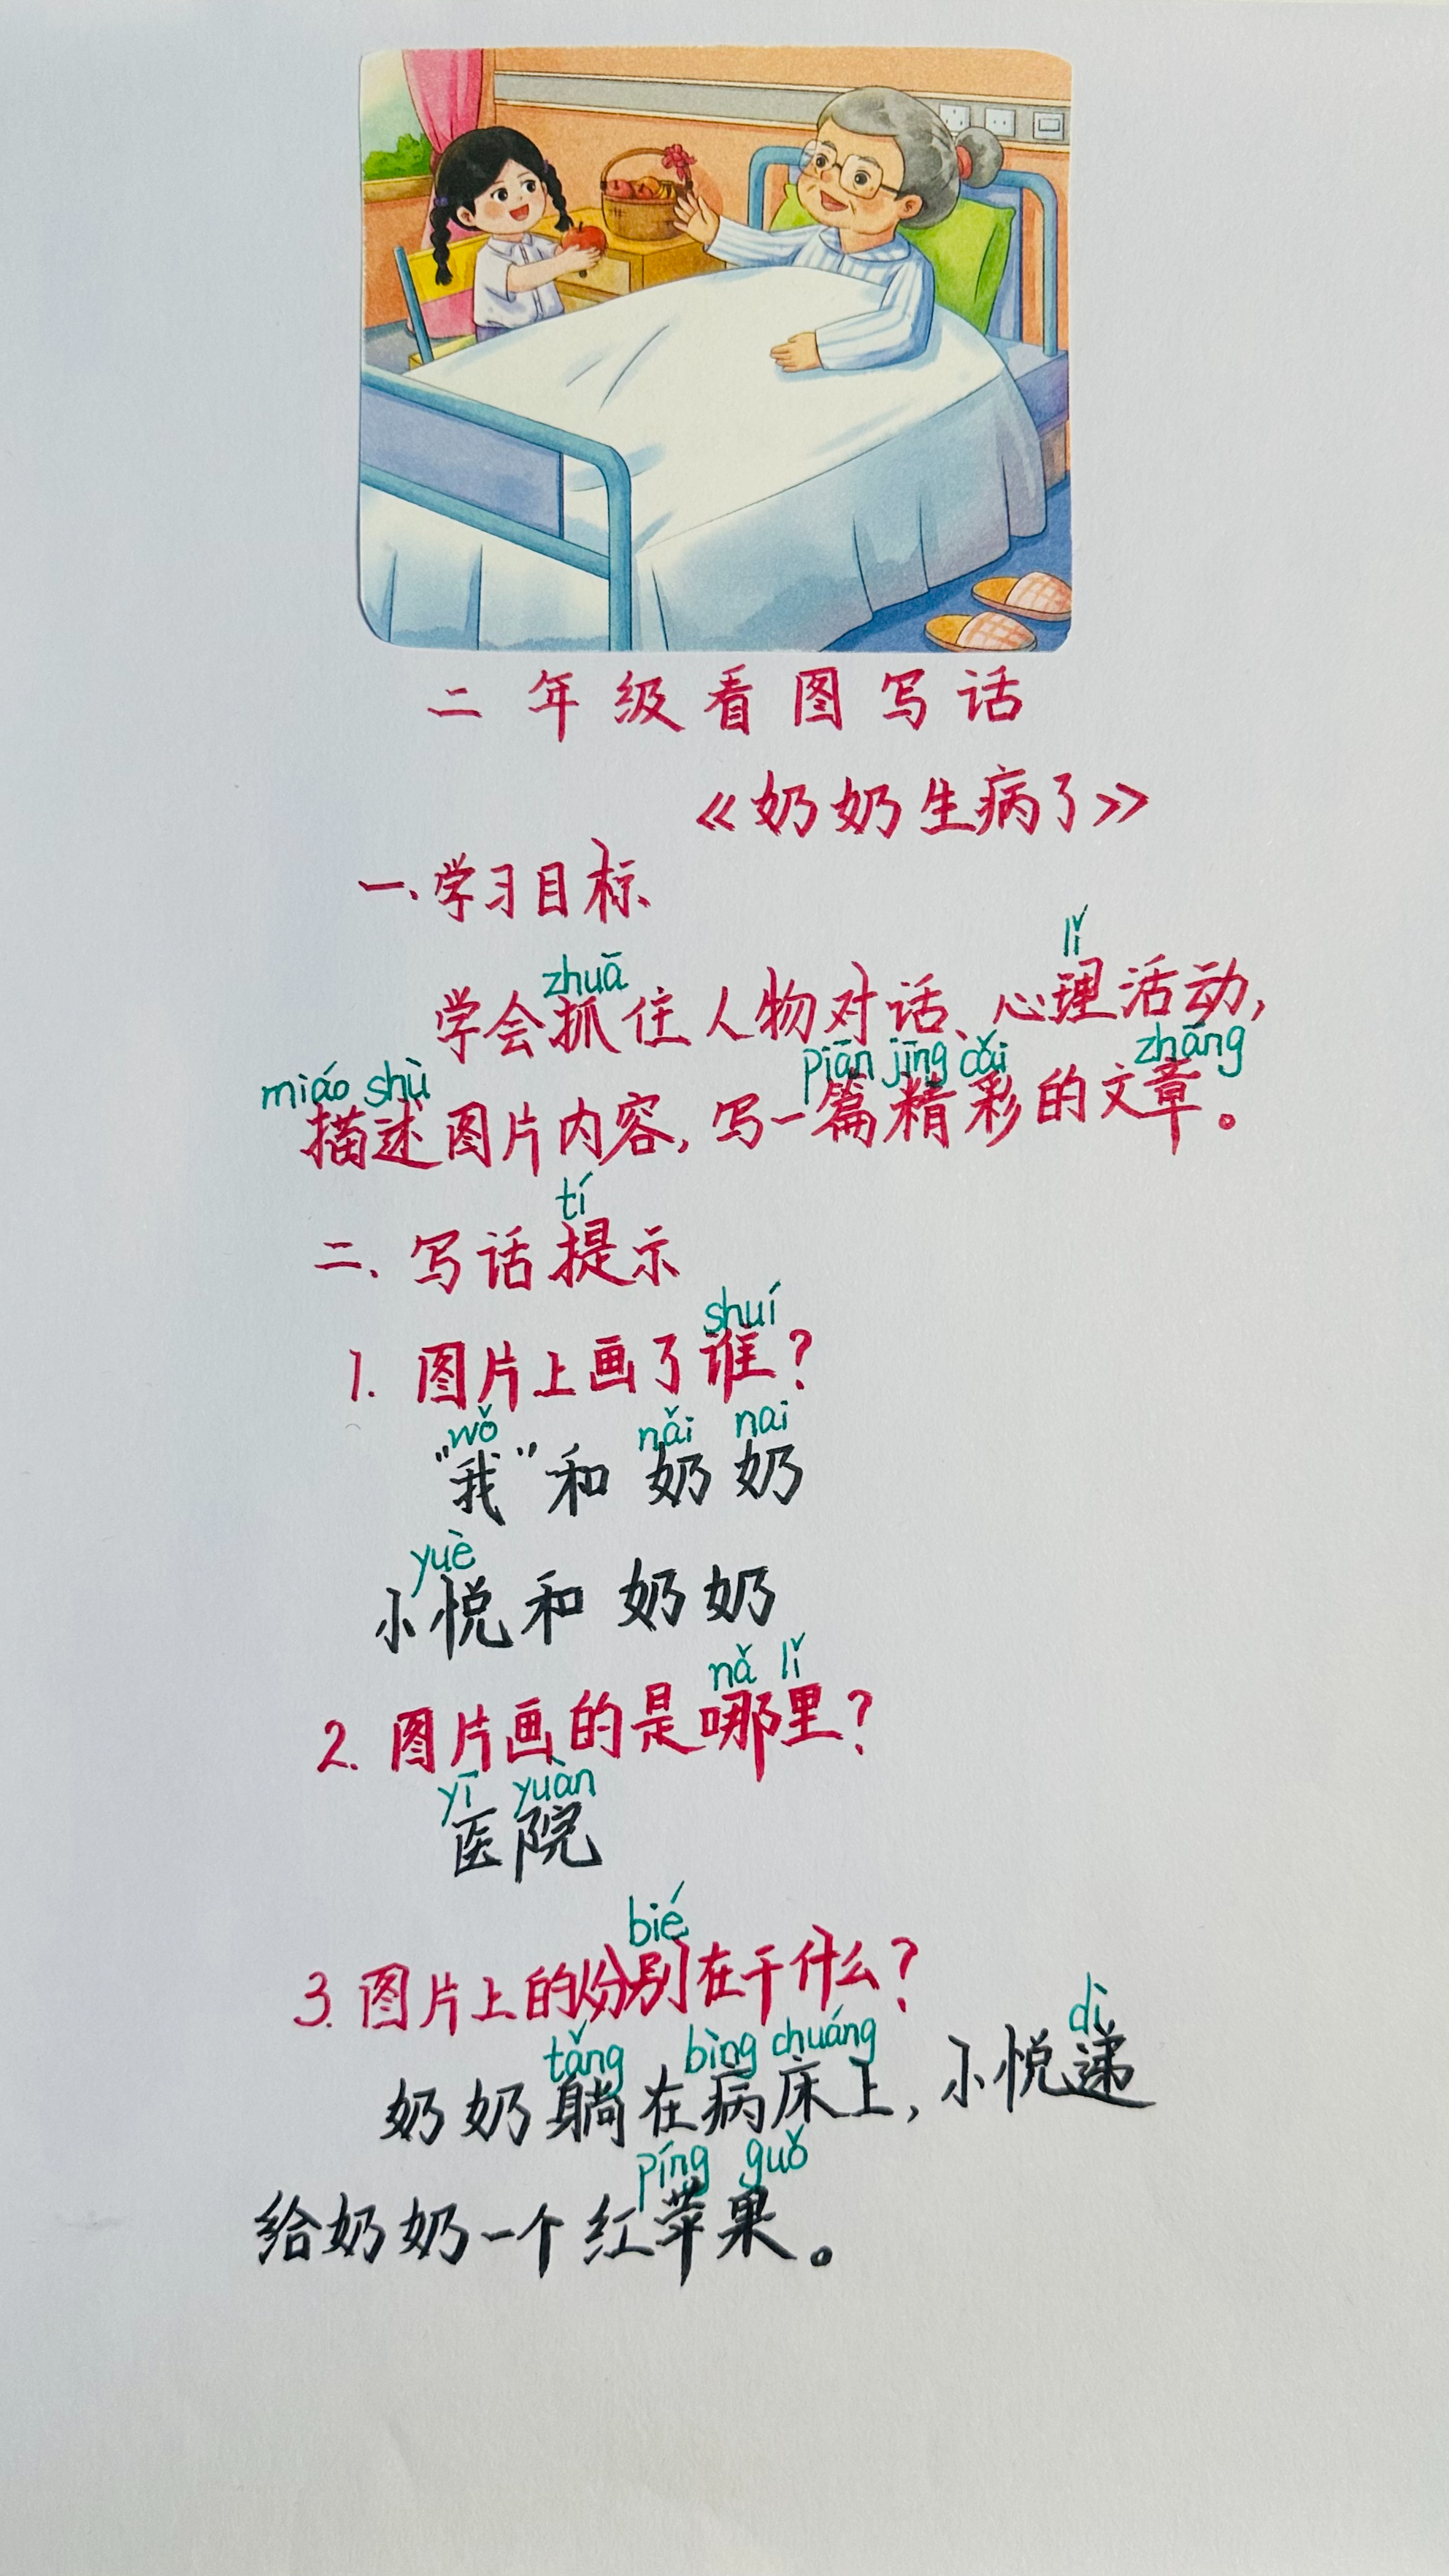 二年级看图写话
《奶奶生病了》
一、学习目标
lǐ
zhuā
学会抓住人物对话、心理活动,
miáo shù piān jīng cǎi zhāng
描述图片内容,写一篇精彩的文章。
tí
二、写话提示
shuí
1. 图片上画了谁?
wǒ nǎi nai
"我"和奶奶
yuè
小悦和奶奶
nǎ lǐ
2. 图片画的是哪里?
yī yuàn
医院
bié
3. 图片上的分别在干什么?
tǎng bìng chuáng dì
奶奶躺在病床上,小悦递
píng guǒ
给奶奶一个红苹果。